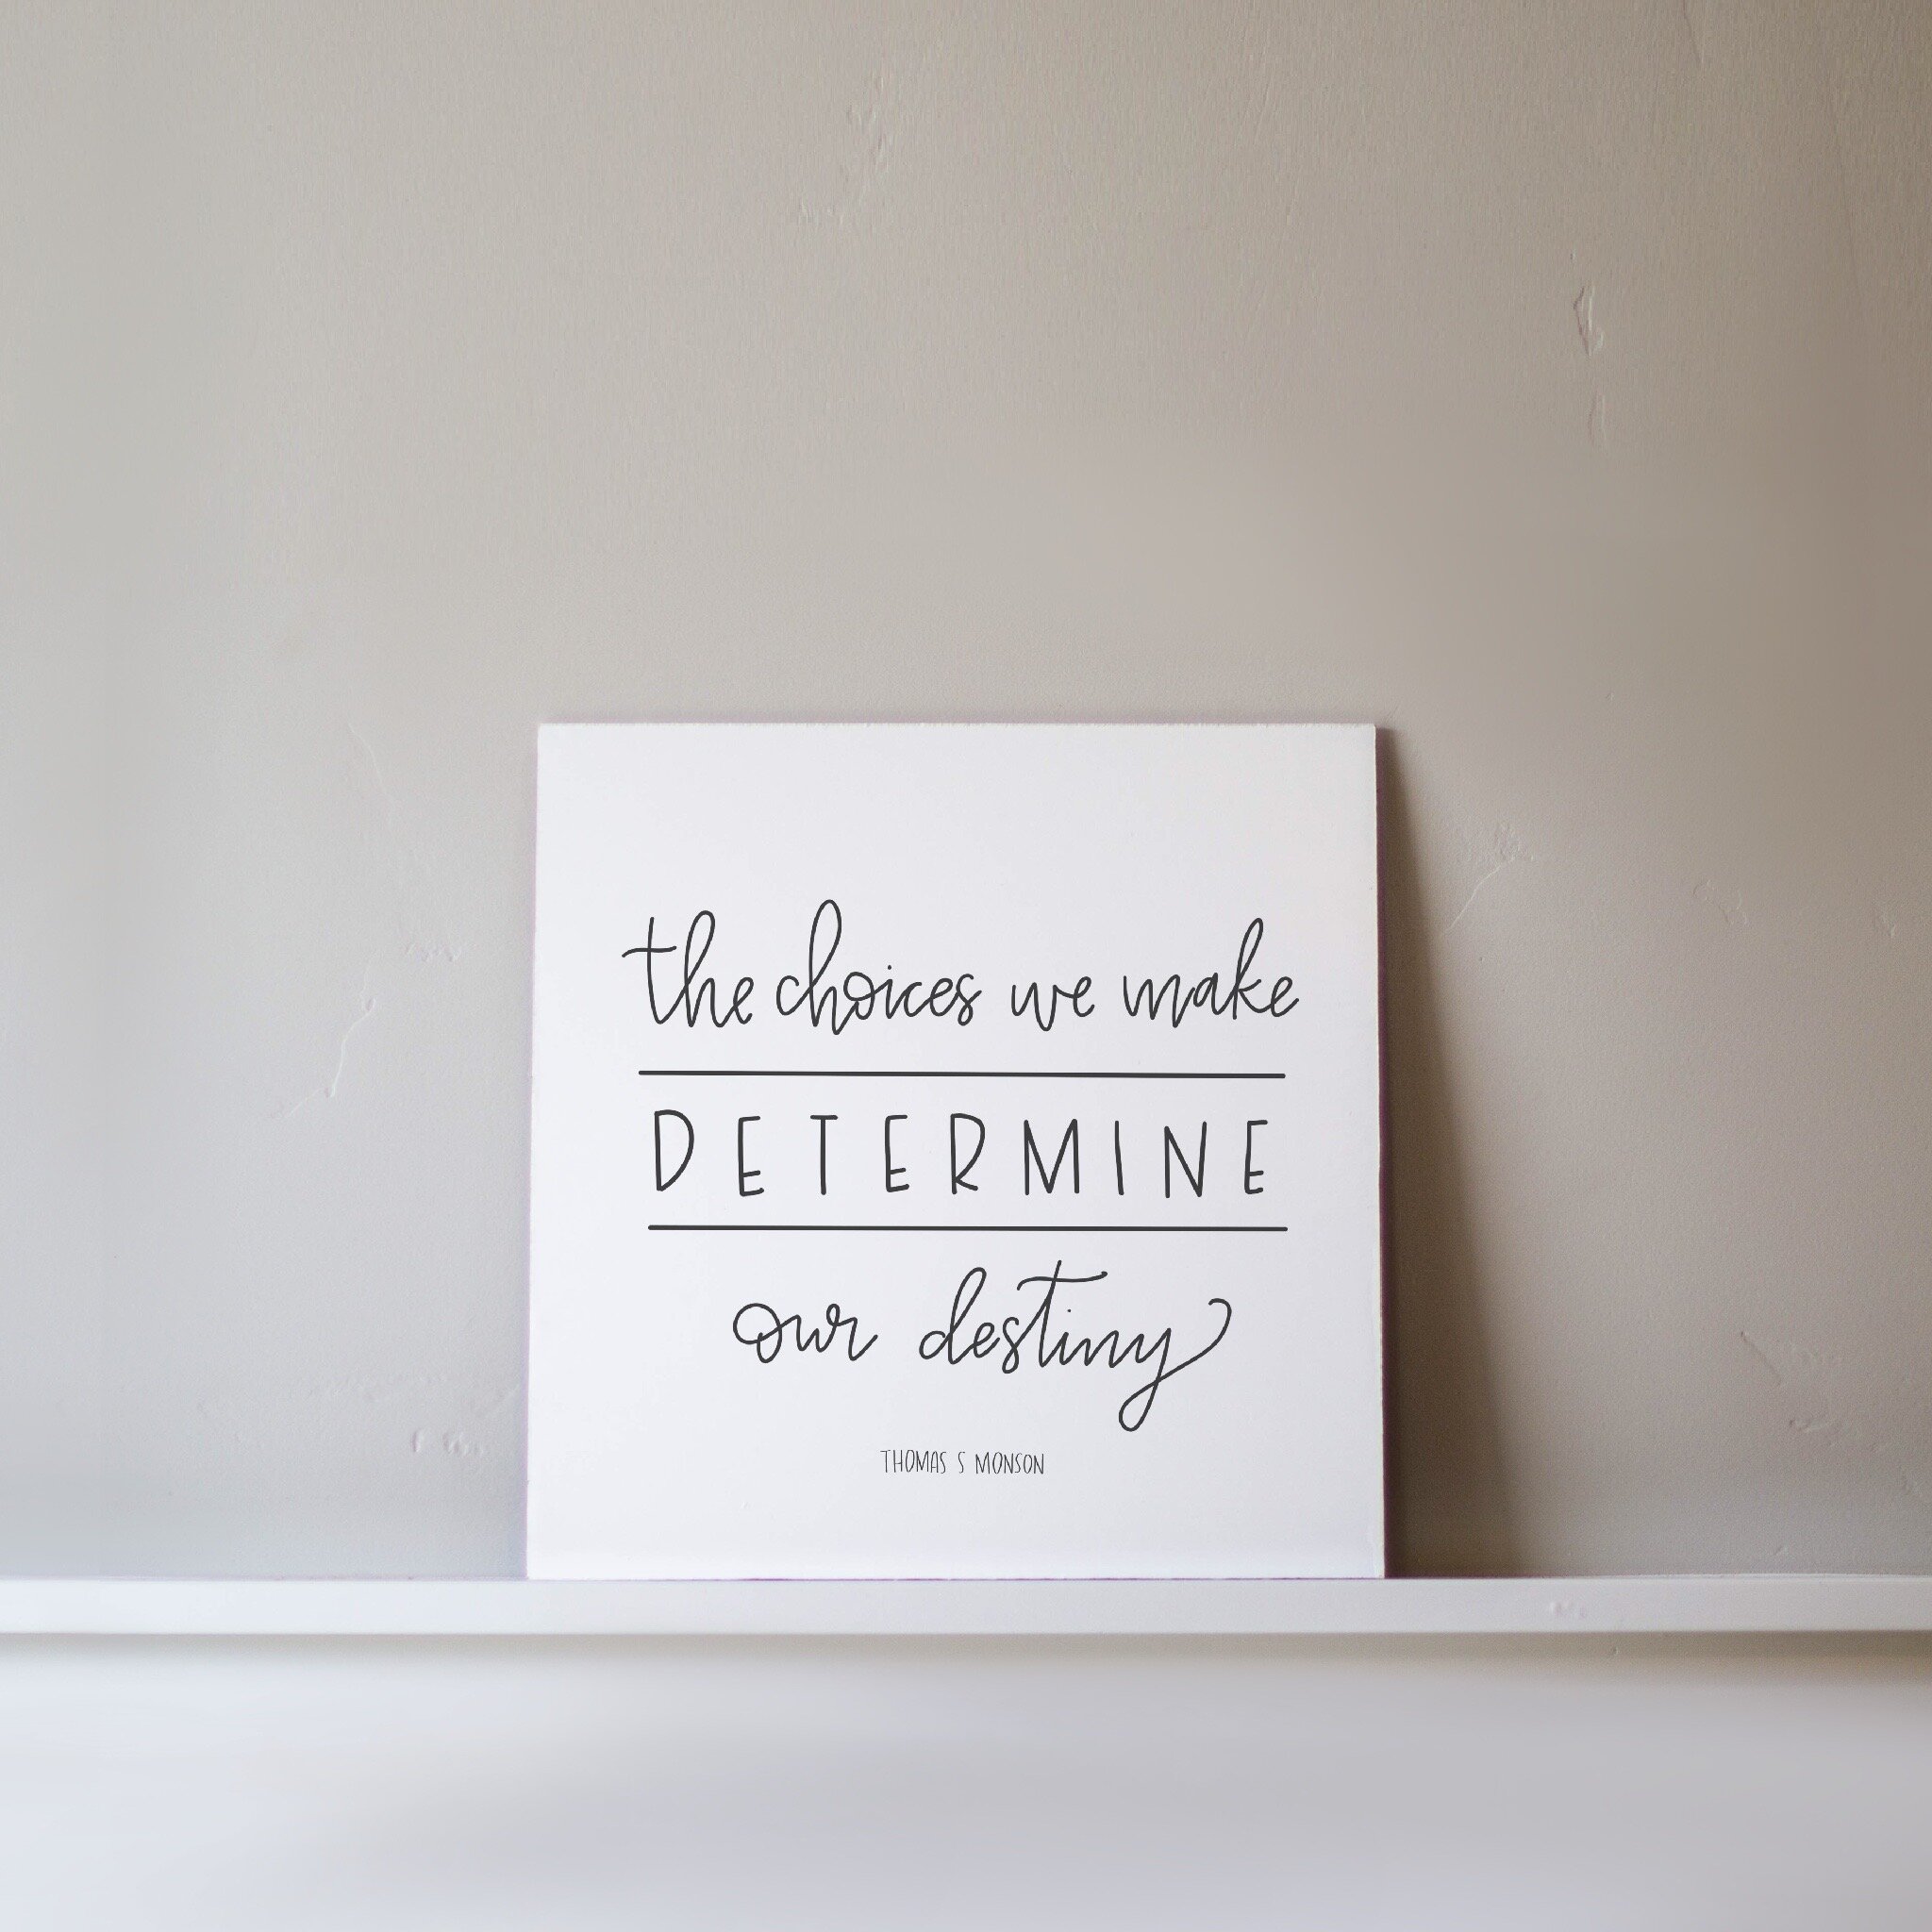 the choices we make
DETERMINE
our destiny
THOMAS S MONSON